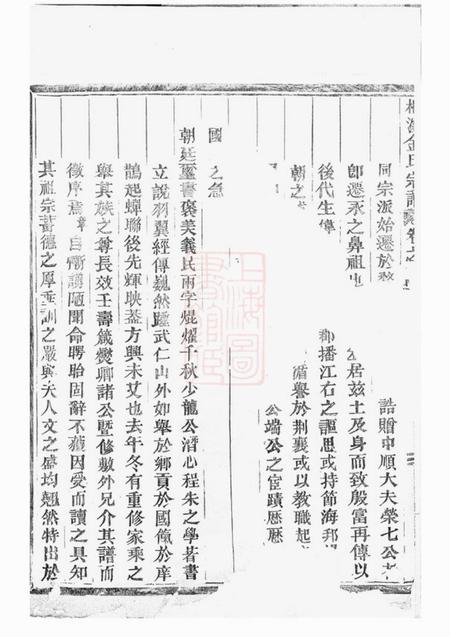 金氏宗譜
同宗派始遷於
誥贈中順大夫榮七公
卽遷永之鼻祖也
公居茲土及身而致殷富再傳以
後代生偉
郡播江右之謳思或持節海邦
循譽於荆襄或以教職起
朝之
公端公之宦蹟歷歷
國之急
朝廷璽書褒美義民兩字焜燿千秋少龍公潛心程朱之學著書
立說羽翼經傳巍然 武仁山外如舉於鄉貢於國僃於庠
鵲起蟬聯後先輝映葢方興未艾也去年冬有重修家乘之
舉其族之尊長效壬壽籛爕卿諸公暨修敷外兄介其譜而
徵序焉自慚謭陋聞命騁胎固辭不獲因受而讀之具知
其祖宗蓄德之厚垂訓之嚴與夫人文之盛均翹然特出於
上海圖書館